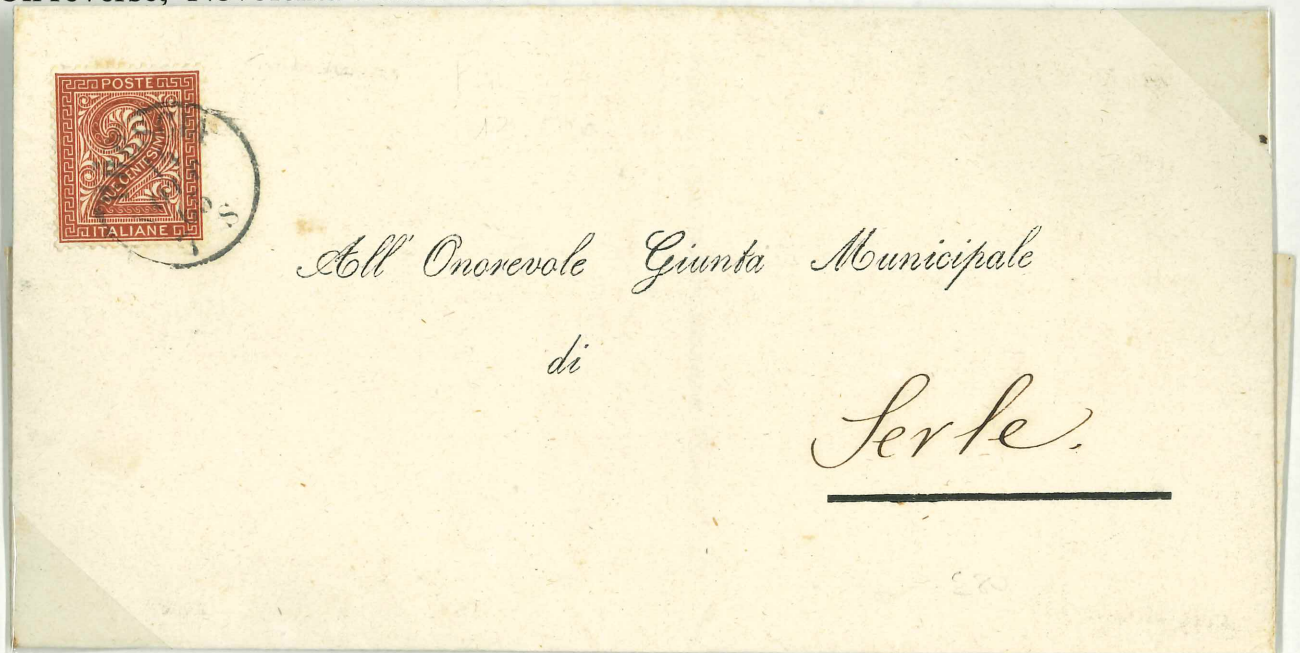 POSTE
DUE CENTESIMI
ITALIANE
All' Onorevole Giunta Municipale
di
Serle.